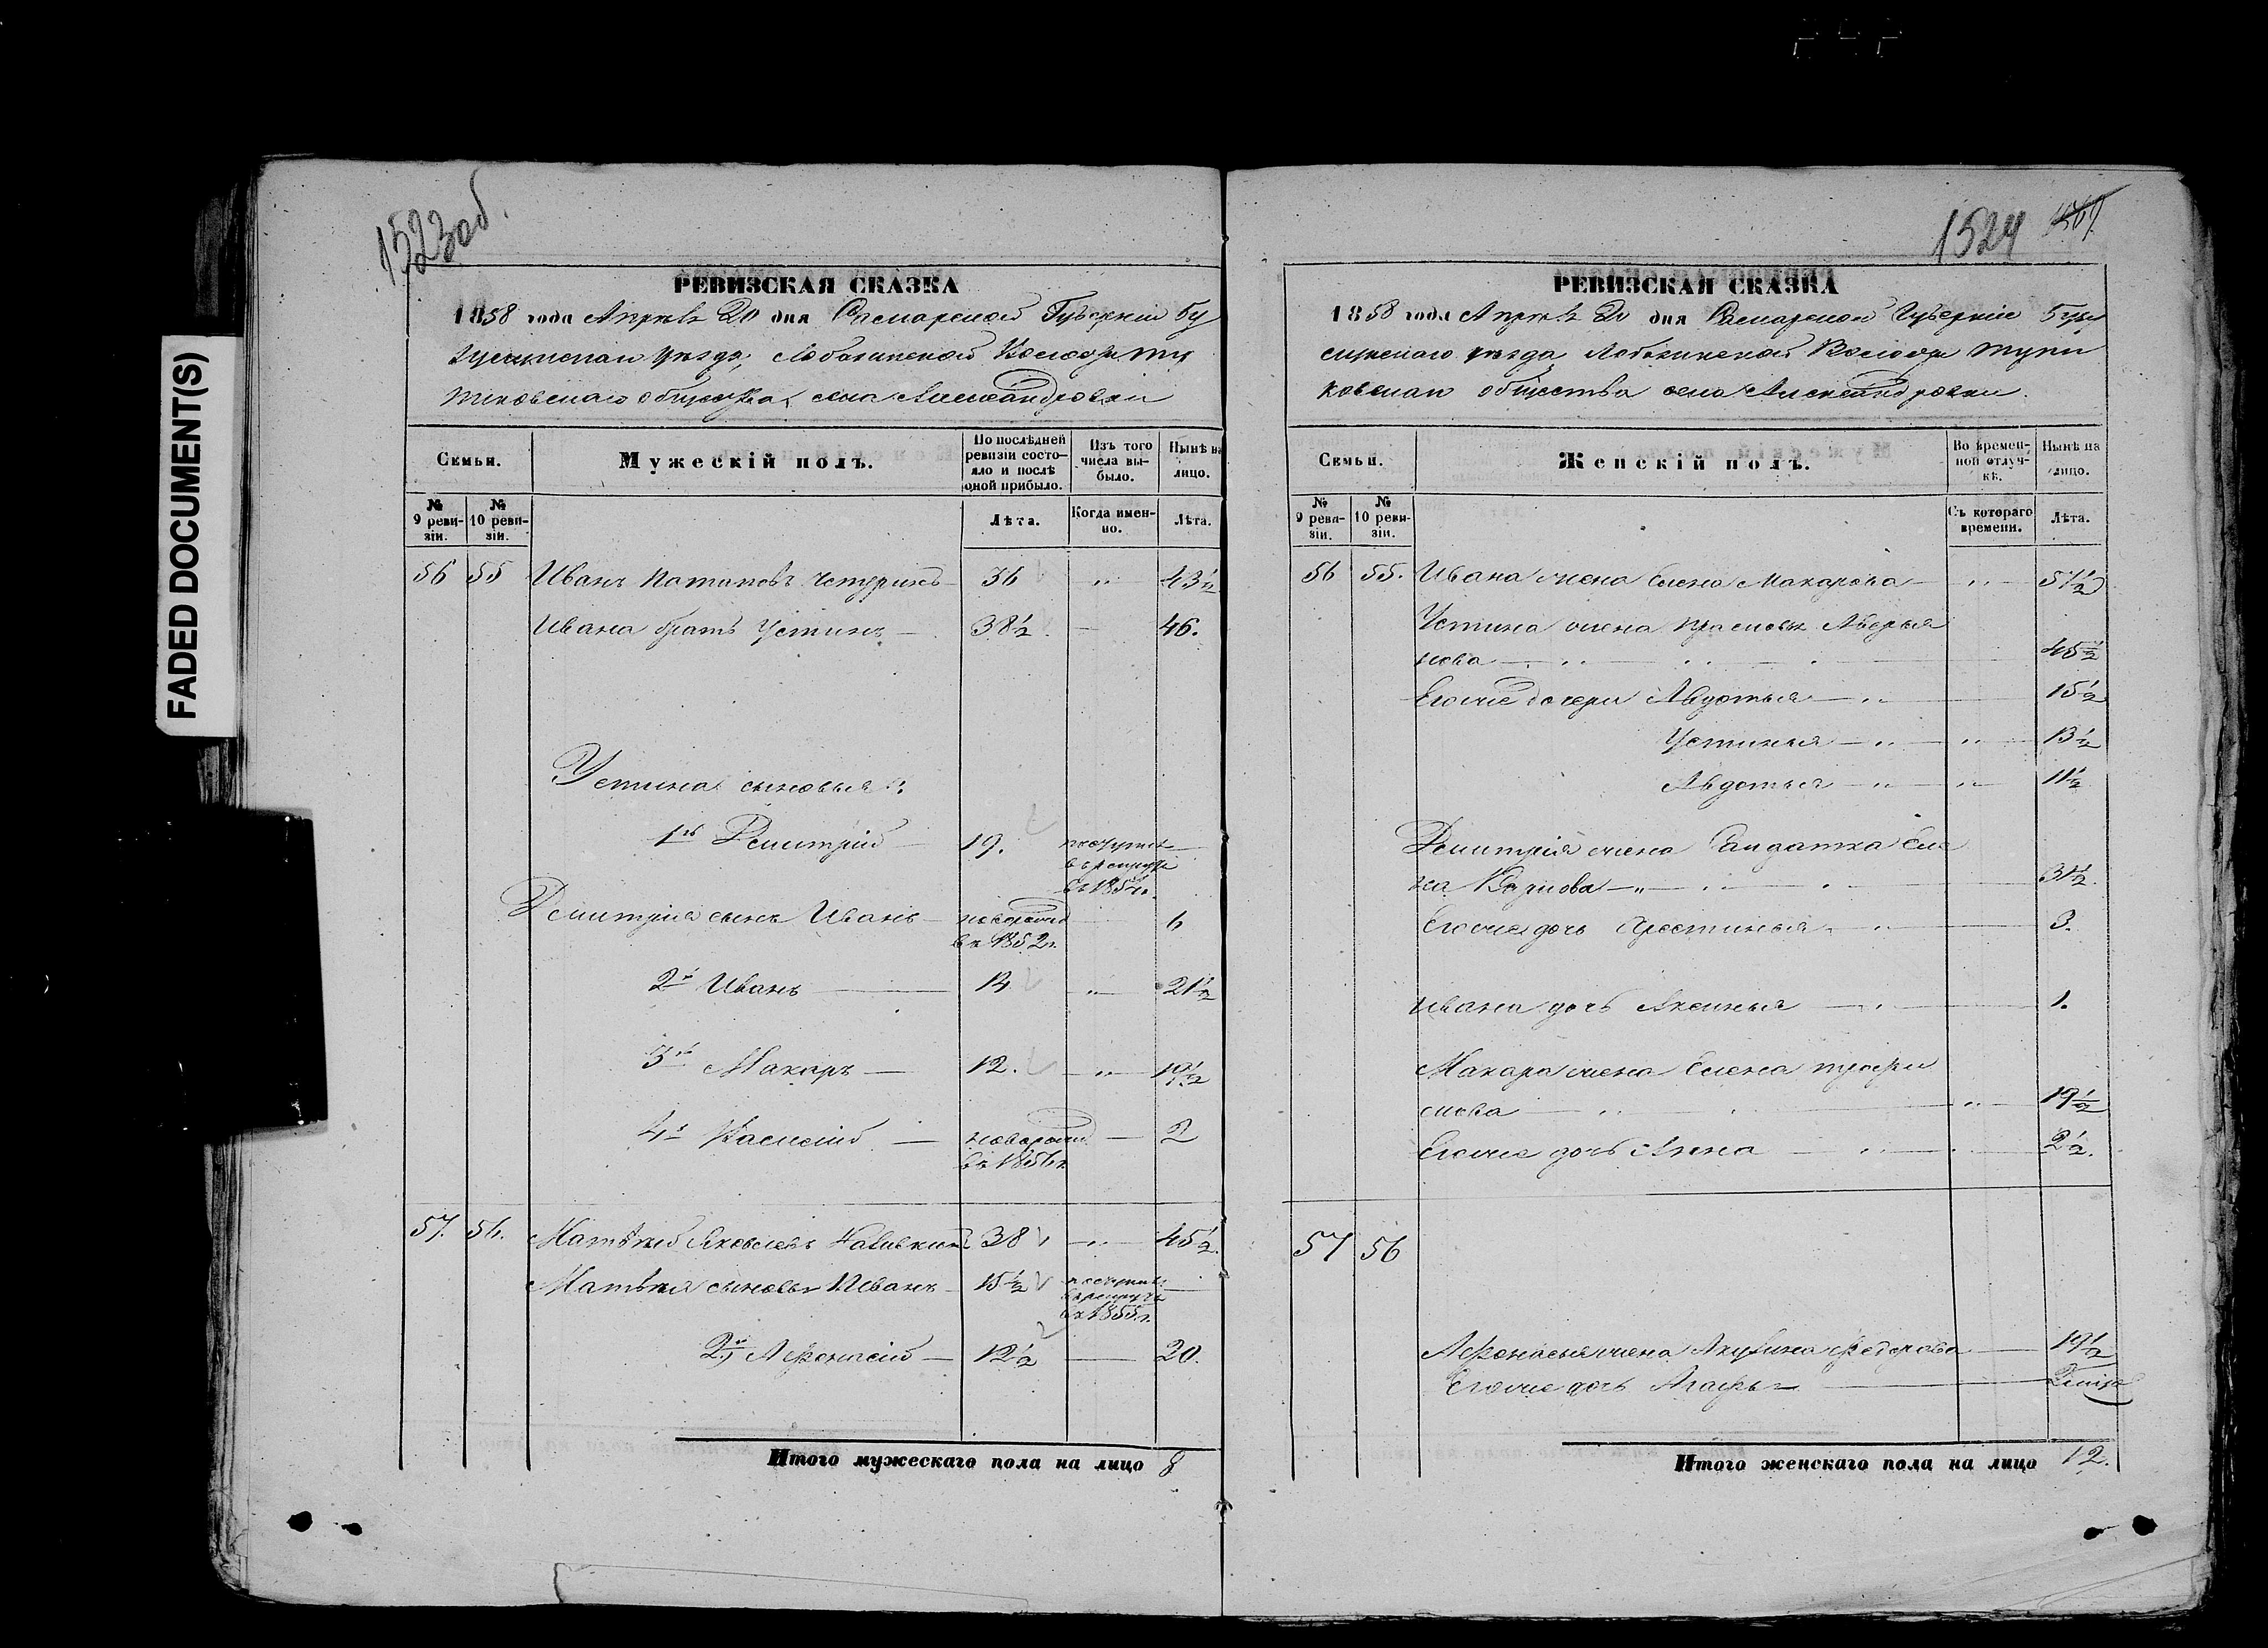 FADED DOCUMENT(S)
1523об.
РЕВИЗСКАЯ СКАЗКА
1858 года Апреля 20 дня Самарской Губернии Бу
гульминскаго уезда, Лобазинской Волости
общества, села Александровки
Семьи.
Мужескій полъ.
По послѣдней ревизіи состояло и послѣ оной прибыло.
Изъ того числа выбыло.
Нынѣ на лицо.
№ 9 реви-зіи.
№ 10 реви-зіи.
Лѣта.
Когда имен-но.
Лѣта.
56 55 Иванъ Потаповъ 36 " 43½
Ивана братъ Устинъ — 38½ — 46.
Устина сыновья:
1й Дмитрій 19. поступилъ в рекруты въ 1854г.
Дмитрія сынъ Иванъ — новорожд въ 1852г. 6
2й Иванъ 14 " 21½
3й Макаръ — 12. " 19½
4й Василій — новорожд въ 1856г — 2
57. 56. Матвѣй Яковлевъ 38 " 45½
Матвѣя сыновья 1 Иванъ 15½ поступилъ в рекруты въ 1855г. —
2й Афонасій — 12½ — 20.
Итого мужескаго пола на лицо 8
1524
РЕВИЗСКАЯ СКАЗКА
1858 года Апреля 20 дня Самарской Губерніи Бугуль
скаго уезда Лобазинской Волости
общества села Александровки.
Семьи.
Женскій полъ.
Во времен-ной отлуч-кѣ.
Нынѣ на лицо.
№ 9 реви-зіи.
№ 10 реви-зіи.
Съ котораго времени.
Лѣта.
56 55. Ивана жена Елена Макарова — " — 51½
Устина жена Прасковья Аверья
нова 45½
Его же дочери Авдотья — " 15½
Устинья — " — " 13½
Авдотья — " — " 11½
Дмитрія жена Салдатка Еле
на 31½.
Его же дочь Хрестинья — " 3.
Ивана дочь Аксинья — " 1.
Макара жена Елена Трофи
мова " 19½
Его же дочь Анна — " 2½.
57 56
Афонасья жена Акулина Федорова — 19½
Его же дочь Агафья —
Итого женскаго пола на лицо 12.